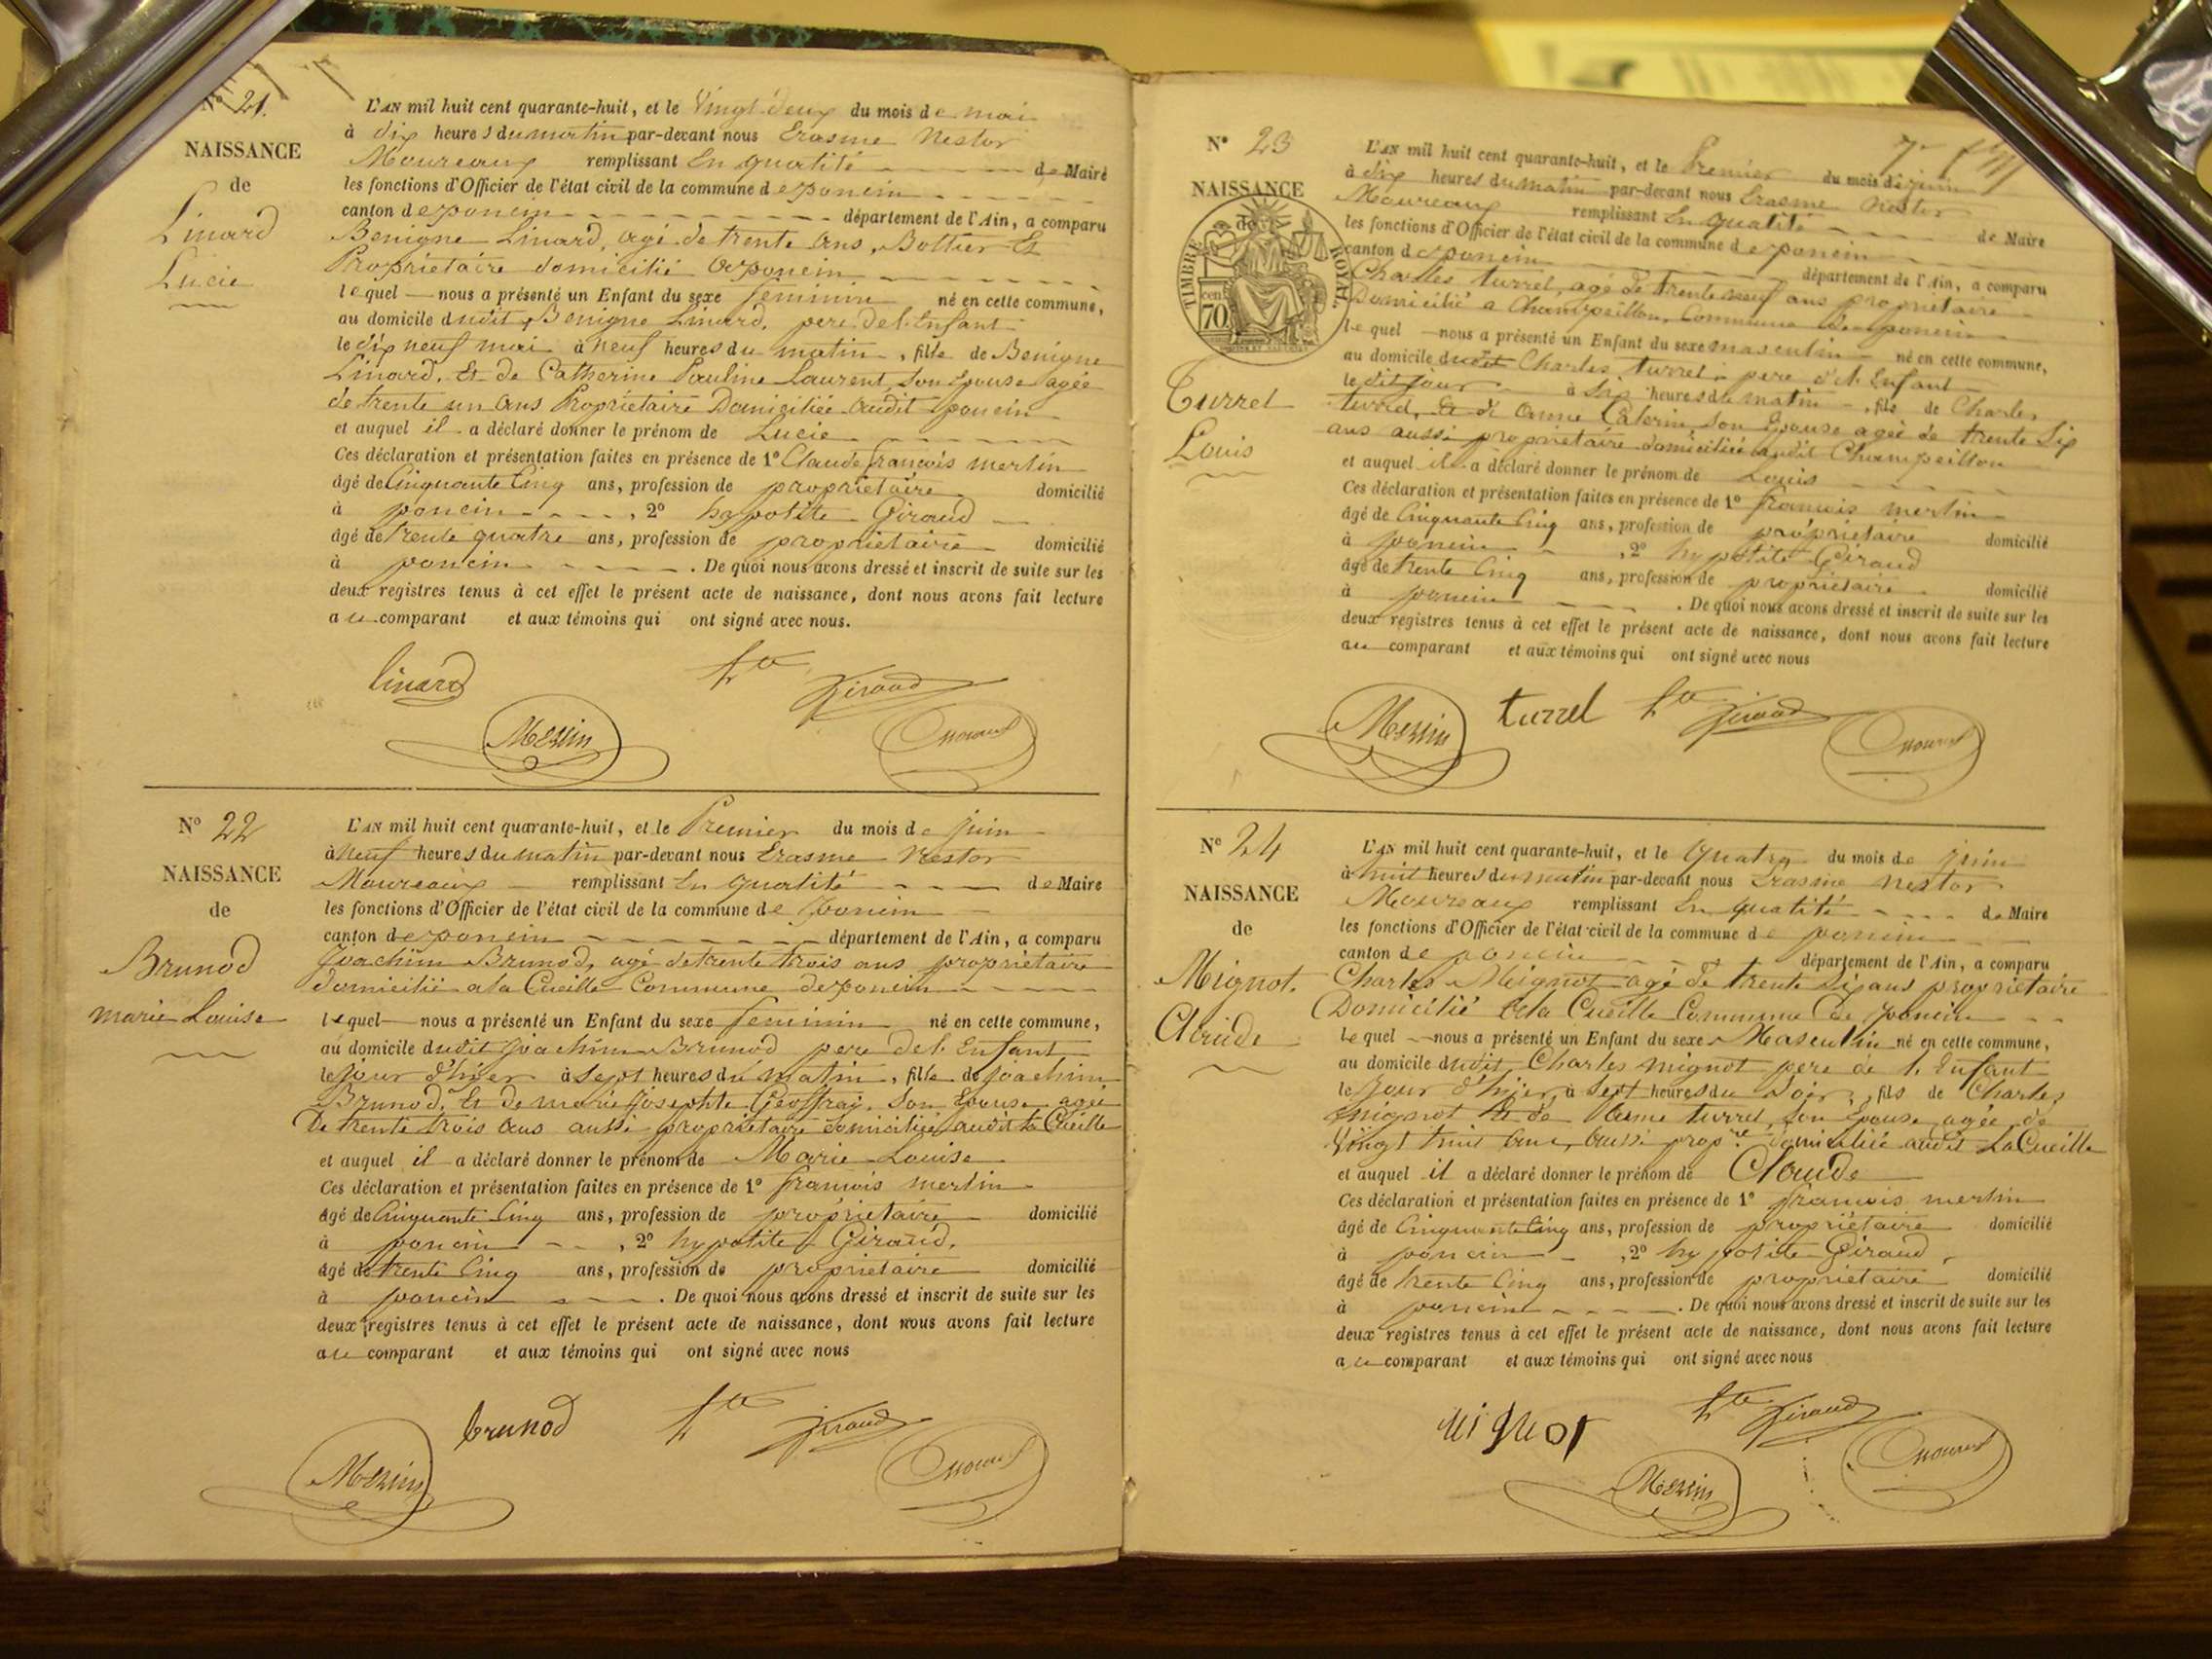 N° 21.
NAISSANCE
de
Linard
Lucie
L'AN mil huit cent quarante-huit, et le Vingt deux du mois de mai
à dix heures du matin par-devant nous Erasme Nestor
Moureaux remplissant En qualité de Maire
les fonctions d'Officier de l'état civil de la commune de poncin
canton de poncin département de l'Ain, a comparu
Benigne Linard, agé de trente ans, Bottier Et
Propriétaire domicilié a poncin
lequel nous a présenté un Enfant du sexe feminin né en cette commune,
au domicile dudit Benigne Linard, pere de l'Enfant
le dix neuf mai à neuf heures du matin, fille de Benigne
Linard, Et de Catherine Pauline Laurent, son Epouse agée
de trente un ans Propriétaire Domiciliée audit poncin
et auquel il a déclaré donner le prénom de Lucie
Ces déclaration et présentation faites en présence de 1° Claude françois merlin
âgé de Cinquante Cinq ans, profession de propriétaire domicilié
à poncin, 2° hypolite Giraud
âgé de trente quatre ans, profession de propriétaire domicilié
à poncin. De quoi nous avons dressé et inscrit de suite sur les
deux registres tenus à cet effet le présent acte de naissance, dont nous avons fait lecture
au comparant et aux témoins qui ont signé avec nous.
linard hte Giraud
Merlin Moureaux
N° 22
NAISSANCE
de
Brunod
marie Louise
L'AN mil huit cent quarante-huit, et le Premier du mois de juin
à neuf heures du matin par-devant nous Erasme Nestor
Moureaux remplissant En qualité de Maire
les fonctions d'Officier de l'état civil de la commune de poncin
canton de poncin département de l'Ain, a comparu
Joachim Brunod, agé de trente trois ans propriétaire
domicilié a la Cueille Commune de poncin
lequel nous a présenté un Enfant du sexe feminin né en cette commune,
au domicile dudit Joachim Brunod pere de l'Enfant
le jour d'hier à Sept heures du matin, fille de Joachim
Brunod, Et de marie josephte Geoffray, Son Epouse agée
De trente trois ans aussi propriétaire domiciliée audit la Cueille
et auquel il a déclaré donner le prénom de Marie Louise
Ces déclaration et présentation faites en présence de 1° françois merlin
âgé de Cinquante Cinq ans, profession de propriétaire domicilié
à poncin, 2° hypolite Giraud,
âgé de trente Cinq ans, profession de propriétaire domicilié
à poncin. De quoi nous avons dressé et inscrit de suite sur les
deux registres tenus à cet effet le présent acte de naissance, dont nous avons fait lecture
au comparant et aux témoins qui ont signé avec nous
brunod hte Giraud
Merlin Moureaux
N° 23
NAISSANCE
de
TIMBRE ROYAL.
cen 70
Turrel
Louis
L'AN mil huit cent quarante-huit, et le Premier du mois de juin
à dix heures du matin par-devant nous Erasme Nestor
Moureaux remplissant En qualité de Maire
les fonctions d'Officier de l'état civil de la commune de poncin
canton de poncin département de l'Ain, a comparu
Charles turrel, agé de trente neuf ans propriétaire
Domicilié a Champeillon, Commune de poncin
lequel nous a présenté un Enfant du sexe masculin né en cette commune,
au domicile dudit Charles turrel pere de l'Enfant
le dit jour à Six heures du matin, fils de Charles
turrel, Et de anne Calorin, son Epouse agée de trente Six
ans aussi propriétaire domiciliée audit Champeillon
et auquel il a déclaré donner le prénom de Louis
Ces déclaration et présentation faites en présence de 1° françois merlin
âgé de Cinquante Cinq ans, profession de propriétaire domicilié
à poncin, 2° hypolite Giraud
âgé de trente Cinq ans, profession de propriétaire domicilié
à poncin. De quoi nous avons dressé et inscrit de suite sur les
deux registres tenus à cet effet le présent acte de naissance, dont nous avons fait lecture
au comparant et aux témoins qui ont signé avec nous
Merlin turrel hte Giraud Moureaux
N° 24
NAISSANCE
de
Mignot.
Claude
L'AN mil huit cent quarante-huit, et le Quatre du mois de juin
à huit heures du matin par-devant nous Erasme Nestor
Moureaux remplissant En qualité de Maire
les fonctions d'Officier de l'état civil de la commune de poncin
canton de poncin département de l'Ain, a comparu
Charles Mignot agé de trente Six ans propriétaire
Domicilié a la Cueille Commune de poncin
lequel nous a présenté un Enfant du sexe Masculin né en cette commune,
au domicile dudit Charles mignot pere de l'Enfant
le Jour d'hier, à Sept heures du Soir, fils de Charles
mignot Et de anne turrel, son Epouse, agée de
Vingt huit ans, aussi propre domiciliée audit La Cueille
et auquel il a déclaré donner le prénom de Claude
Ces déclaration et présentation faites en présence de 1° françois merlin
âgé de Cinquante Cinq ans, profession de propriétaire domicilié
à poncin, 2° hypolite Giraud,
âgé de trente Cinq ans, profession de propriétaire domicilié
à poncin. De quoi nous avons dressé et inscrit de suite sur les
deux registres tenus à cet effet le présent acte de naissance, dont nous avons fait lecture
au comparant et aux témoins qui ont signé avec nous
mignot hte Giraud
Merlin Moureaux